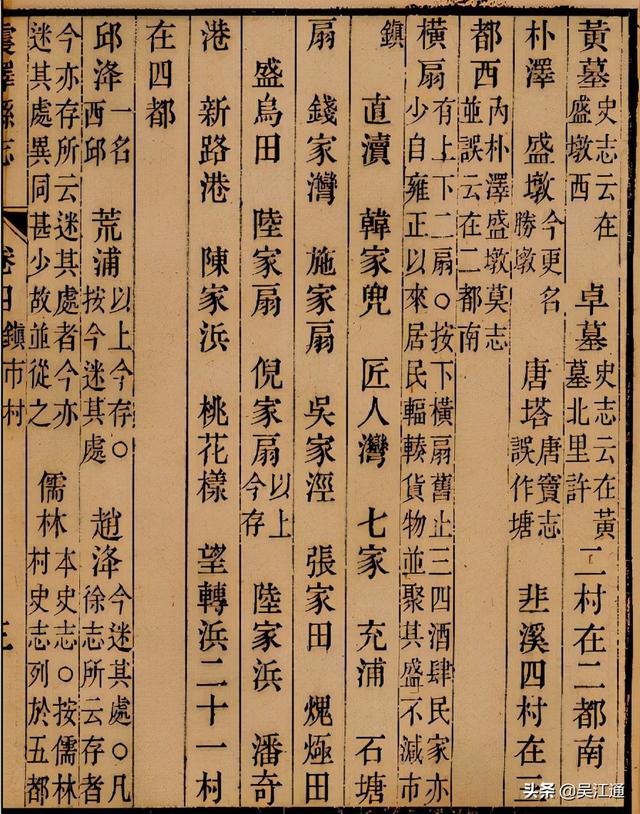 黃墓史志云在盛墩西 卓墓史志云在黃墓北里許 二村在二都南
朴澤 盛墩今更名勝墩 唐塔唐竇志誤作塘 韭溪四村在三
都西內朴澤盛墩莫志並誤云在二都南
橫扇有上下二扇○按下橫扇舊止三四酒肆民家亦少自雍正以來居民輻輳貨物並聚其盛不減市
鎮 直瀆 韓家兜 匠人灣 七家 充浦 石塘
扇 錢家灣 施家扇 吳家涇 張家田 田
盛烏田 陸家扇 倪家扇以上今存 陸家浜 潘奇
港 新路港 陳家浜 桃花樣 望轉浜二十一村
在四都
邱洚一名西邱 荒浦以上今存○按今迷其處 趙洚今迷其處○凡徐志所云存者
今亦存所云迷其處者今亦迷其處異同甚少故並從之 儒林本史志○按儒林村史志列於五都
震澤縣志 卷四 鎮市村 三
头条 @吴江通